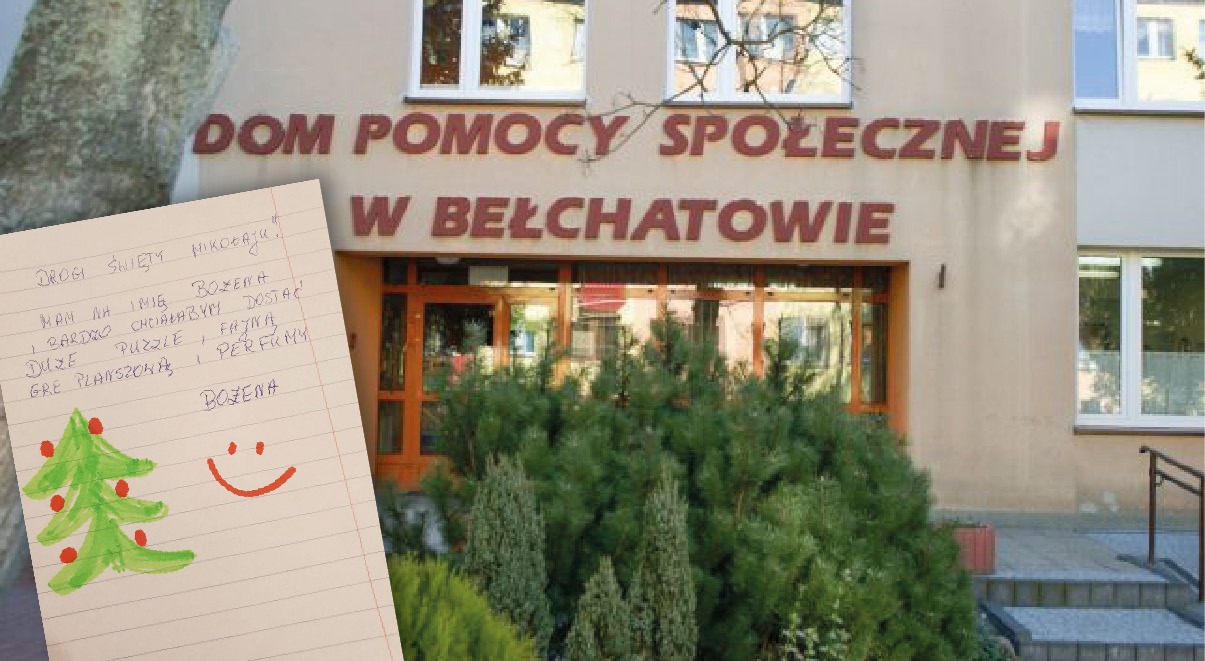 DOM POMOCY SPOŁECZNEJ
W BEŁCHATOWIE
DROGI ŚWIĘTY MIKOŁAJU!
MAM NA IMIĘ BOŻENA
I BARDZO CHCIAŁABYM DOSTAĆ
DUŻE PUZZLE, FAJNĄ
GRE PLANSZOWĄ I PERFUMY
BOŻENA